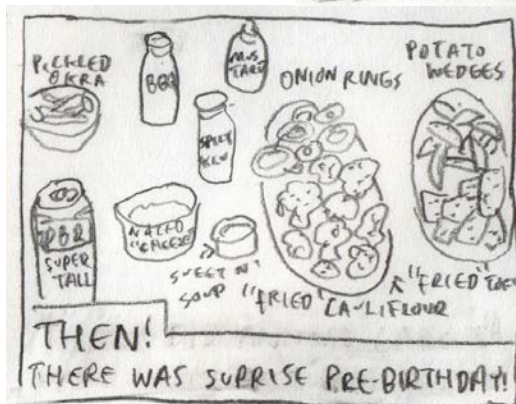 PICKLED
OKRA
BBQ
MUS
TARD
ONION RINGS
POTATO
WEDGES
PBR
SUPER
TALL
NACHO
SWEET N'
"FRIED" CAULIFLOUR
"FRIED"
THEN!
THERE WAS SUPRISE PRE-BIRTHDAY!